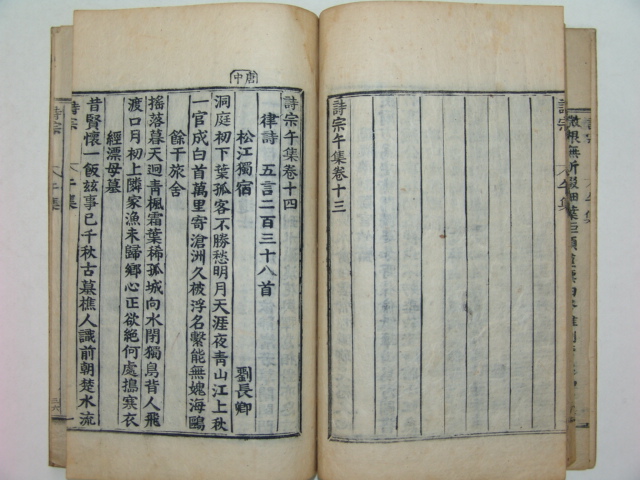 微根無所綴細葉
詩宗 午集
詩宗午集卷十三
唐中
詩宗午集卷十四
律詩 五言二百三十八首
松江獨宿 劉長卿
洞庭初下葉孤客不勝愁明月天涯夜青山江上秋
一官成白首萬里寄滄洲久被浮名繫能無媿海鷗
餘干旅舍
搖落暮天迥青楓霜葉稀孤城向水閉獨鳥背人飛
渡口月初上隣家漁未歸鄉心正欲絕何處擣寒衣
經漂母墓
昔賢懷一飯玆事已千秋古墓樵人識前朝楚水流
詩宗 午集